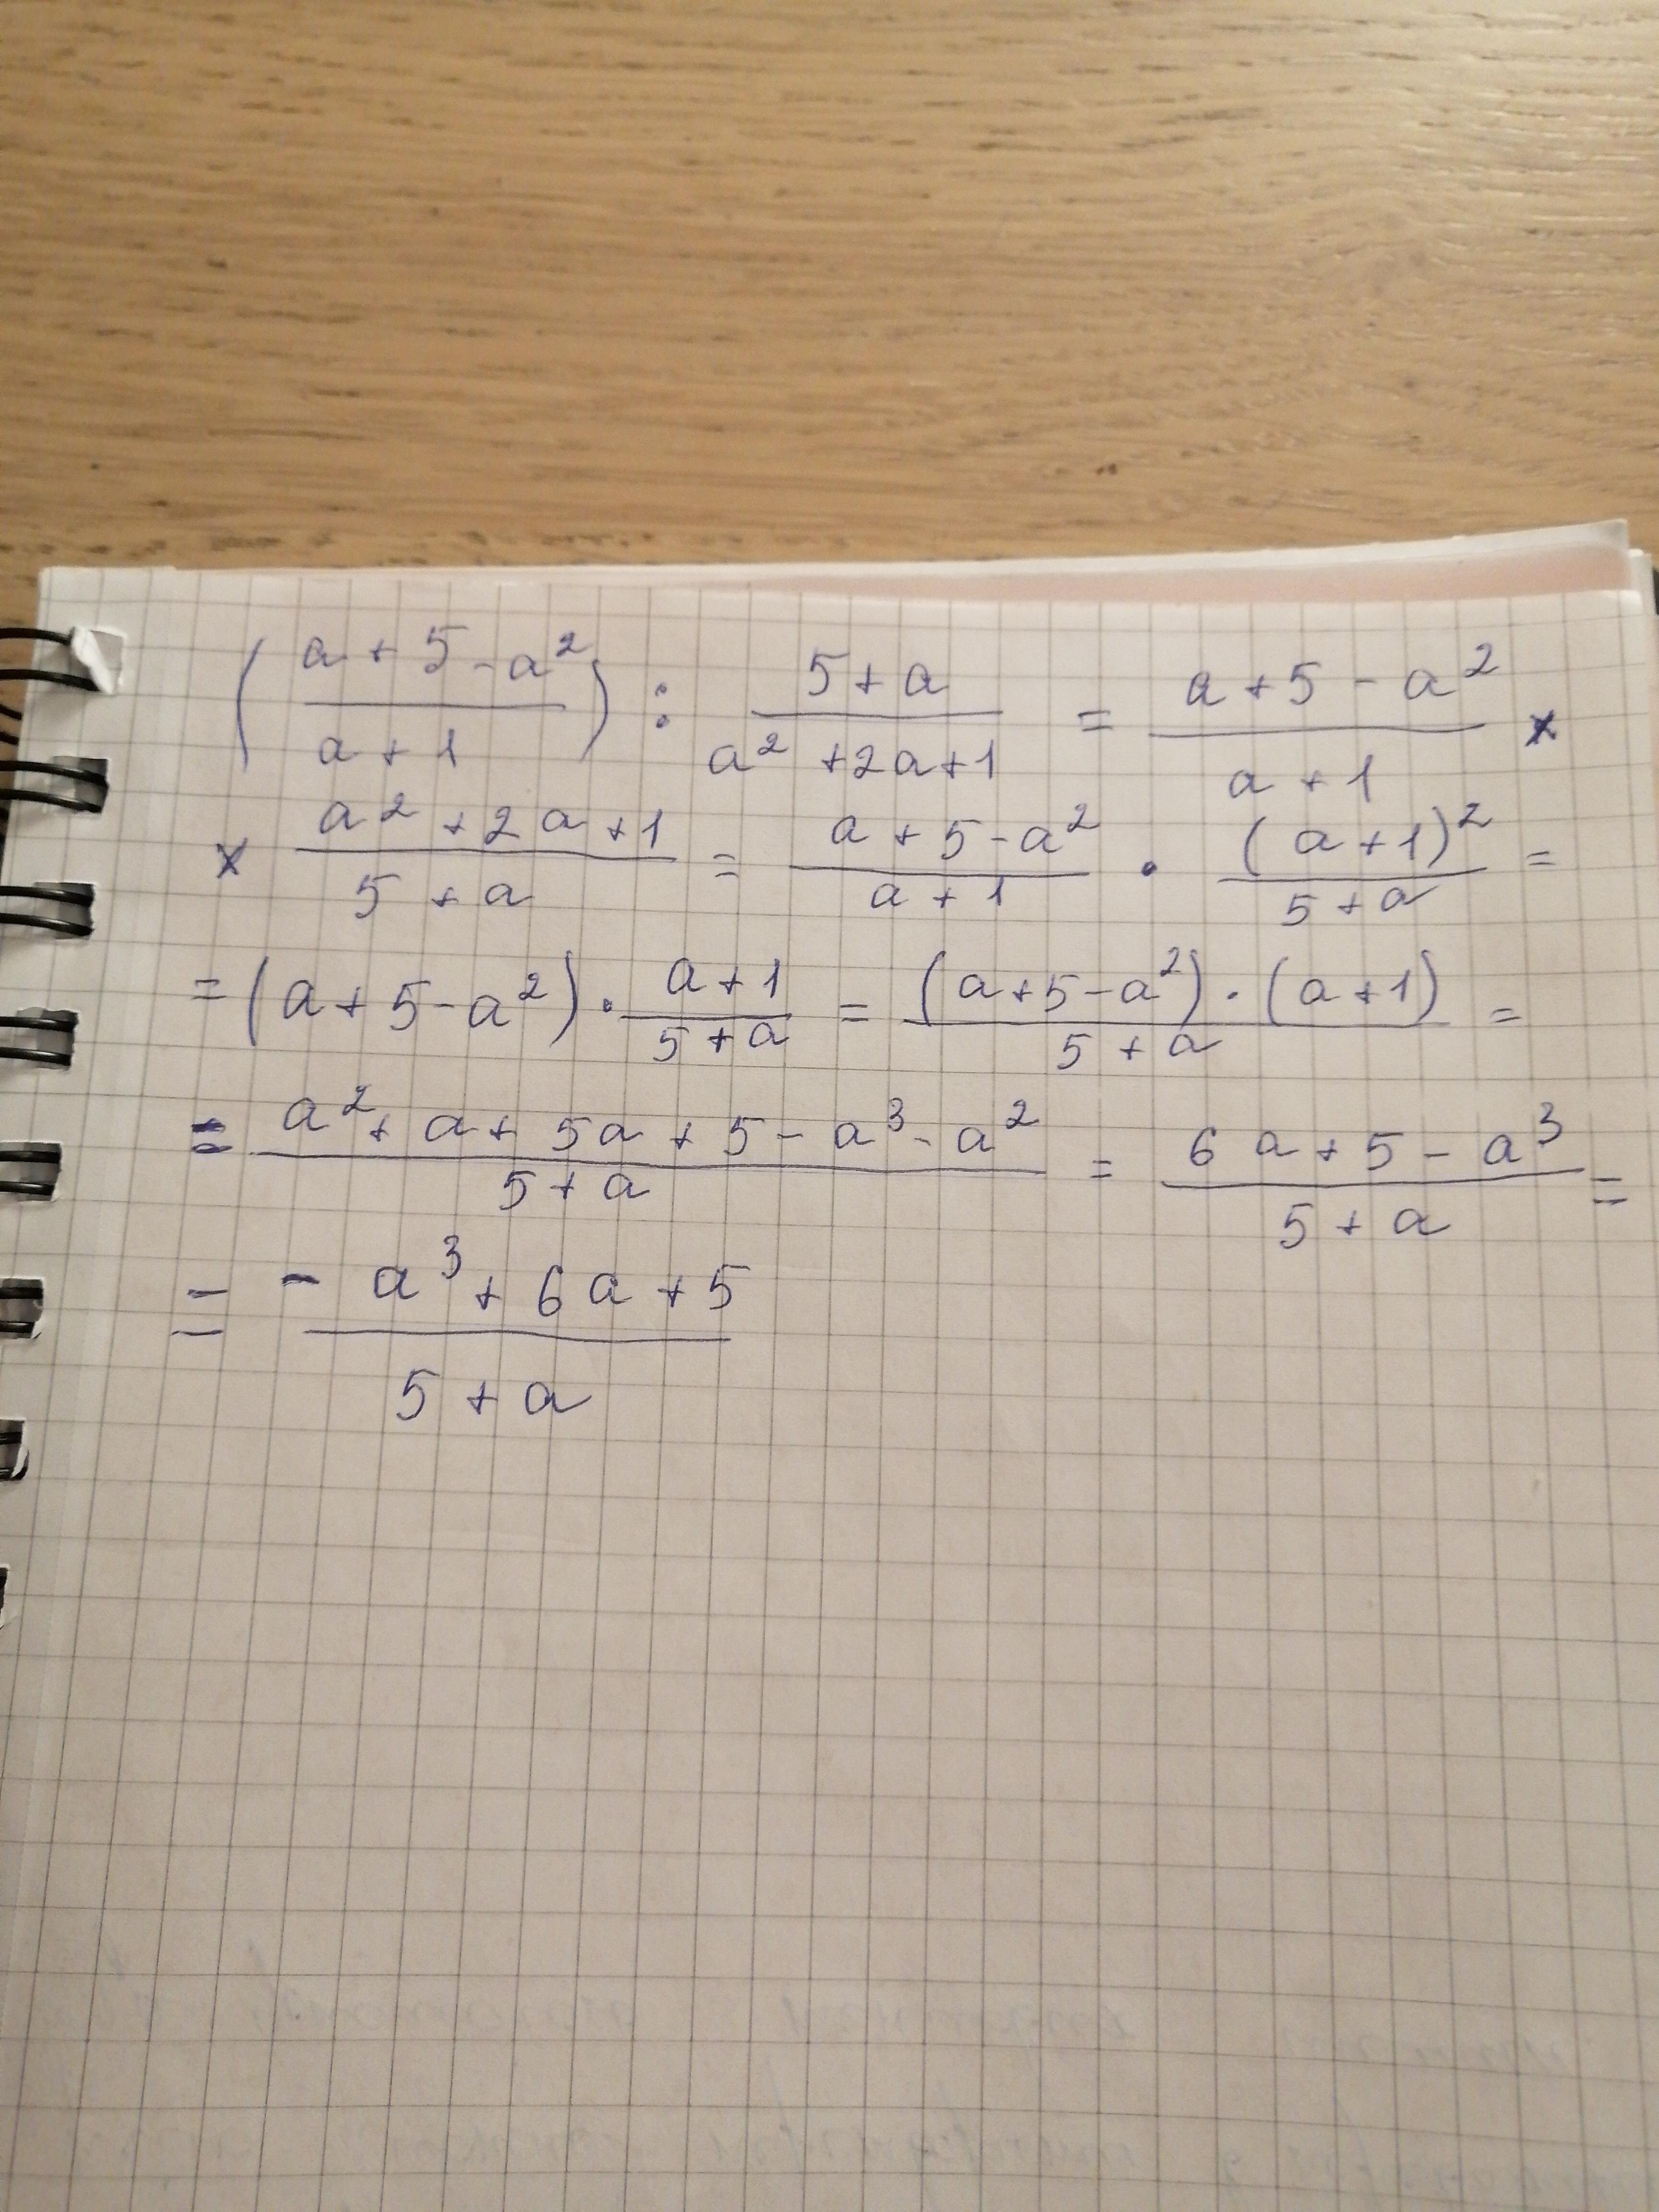 (a + 5 - a²)/(a + 1) : (5 + a)/(a² + 2a + 1) = (a + 5 - a²)/(a + 1) ×
× (a² + 2a + 1)/(5 + a) = (a + 5 - a²)/(a + 1) · (a + 1)²/(5 + a) =
= (a + 5 - a²) · (a + 1)/(5 + a) = (a + 5 - a²) · (a + 1)/(5 + a) =
= (a² + a + 5a + 5 - a³ - a²)/(5 + a) = (6a + 5 - a³)/(5 + a) =
= (- a³ + 6a + 5)/(5 + a)